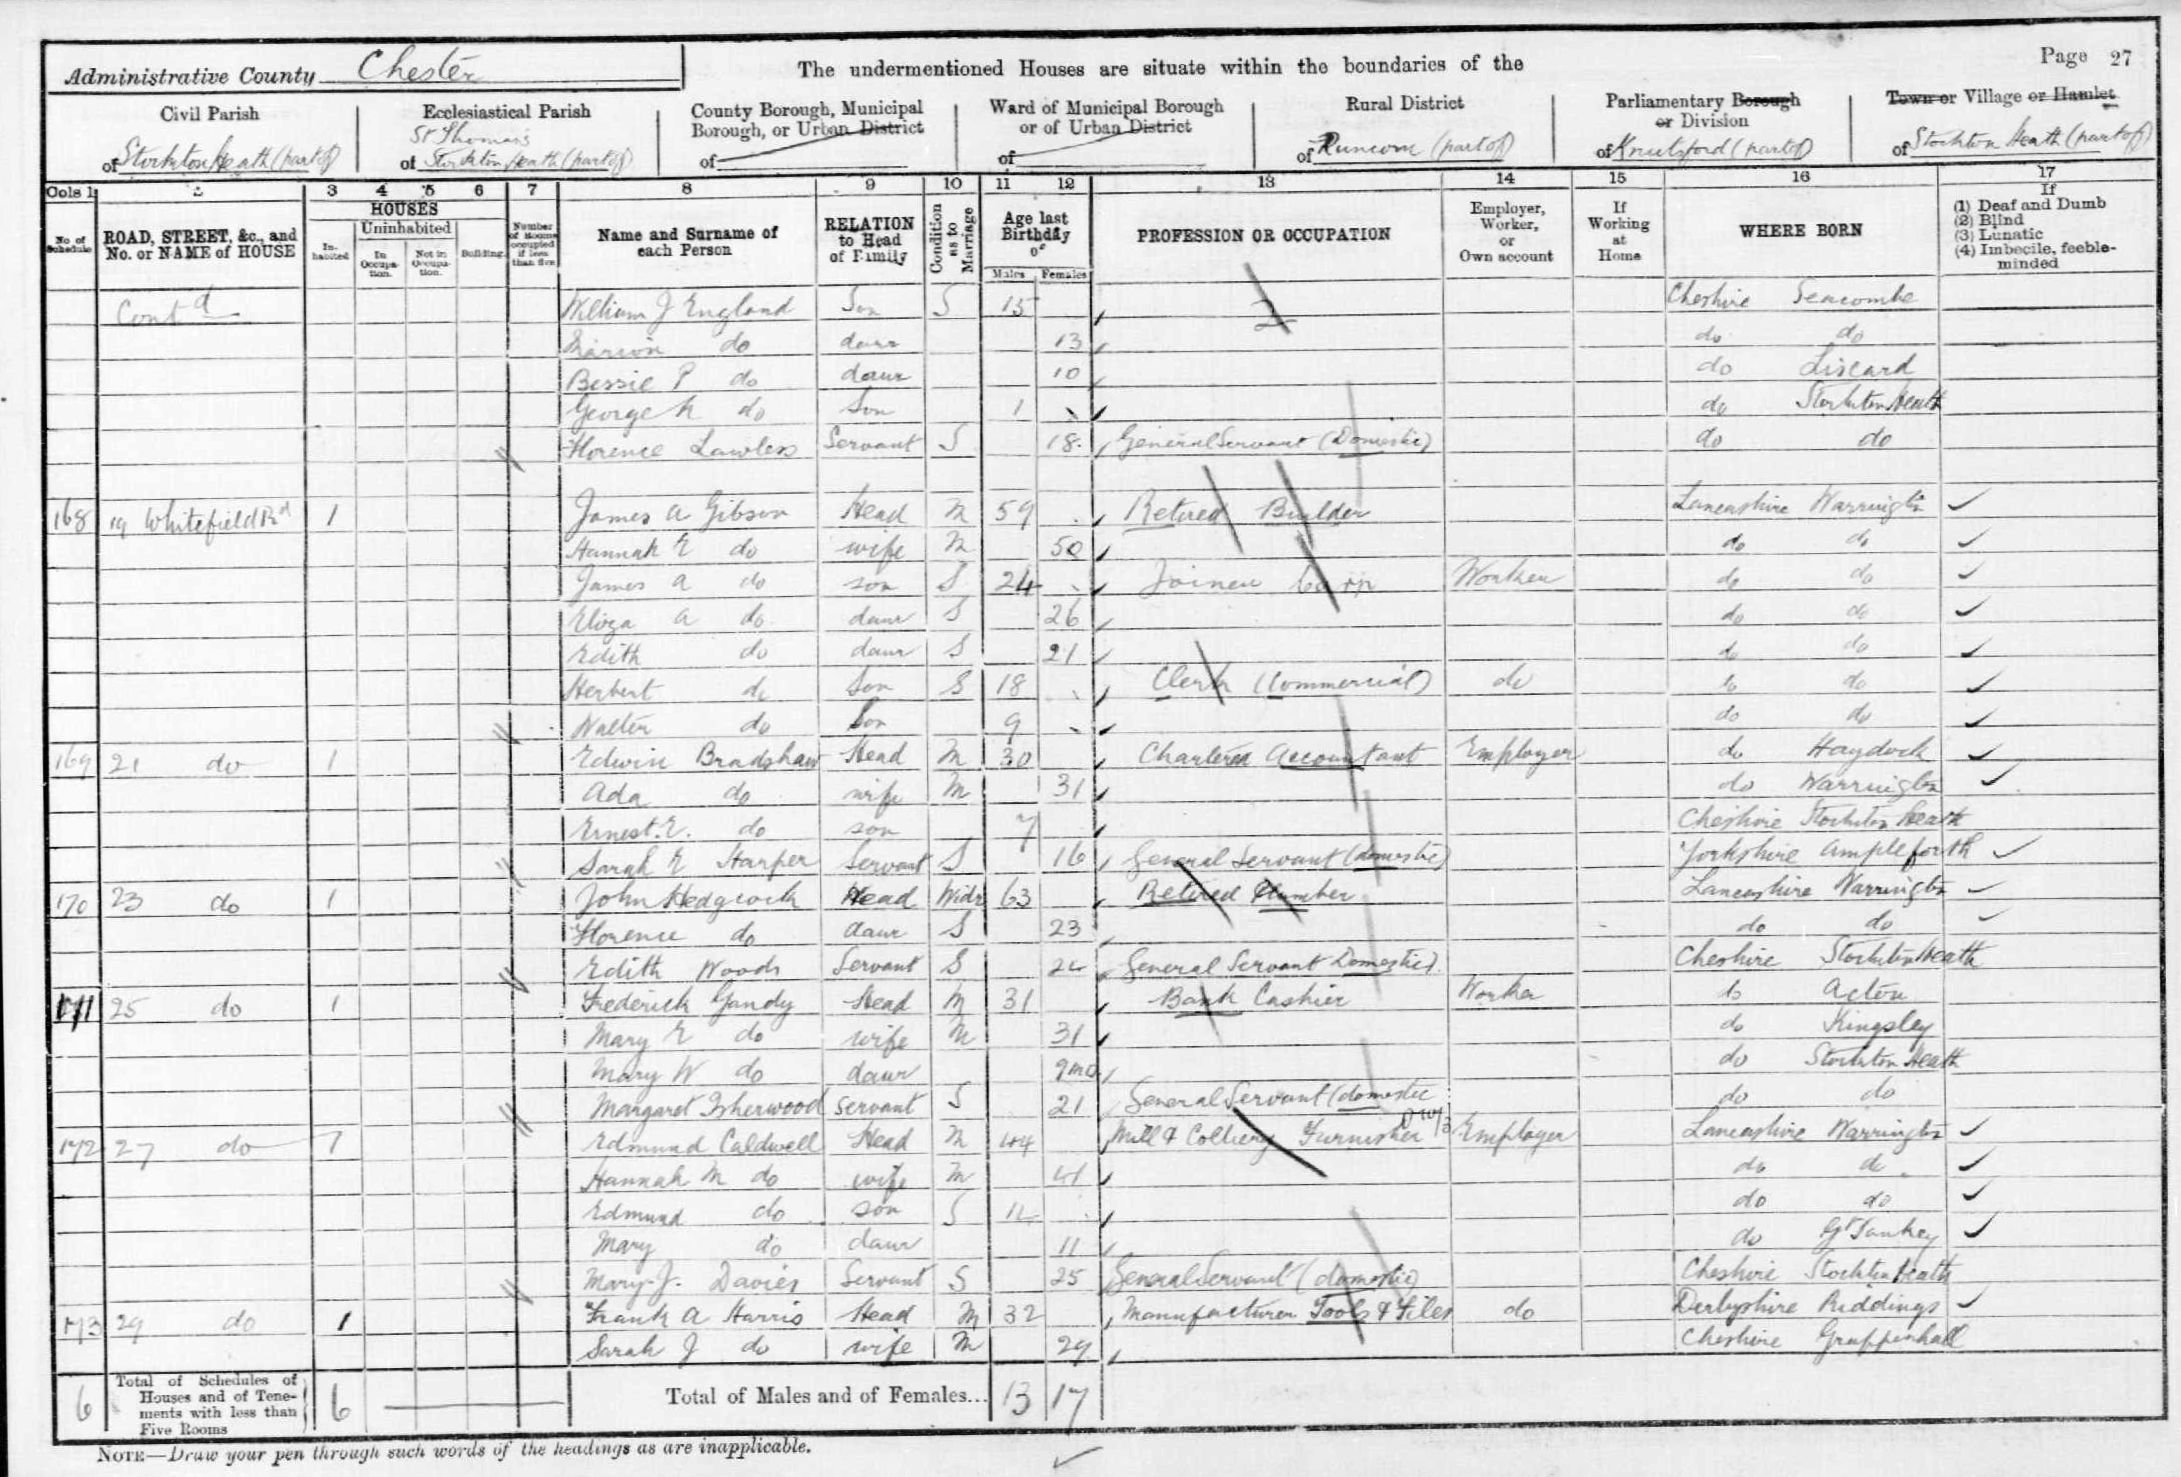 Administrative County Chester
The undermentioned Houses are situate within the boundaries of the
Page 27
Civil Parish
of Stockton Heath (part of)
Ecclesiastical Parish
St Thomas's
of Stockton Heath (part of)
County Borough, Municipal
Borough, or Urban District
of
Ward of Municipal Borough
or of Urban District
of
Rural District
of Runcorn (part of)
Parliamentary Borough
or Division
of Knutsford (part of)
Town or Village or Hamlet
of Stockton Heath (part of)
Cols 1 2 3 4 5 6 7 8 9 10 11 12 13 14 15 16 17
No of Schedule
ROAD, STREET, &c., and No. or NAME of HOUSE
HOUSES
Inhabited
Uninhabited
In Occupation.
Not in Occupation.
Building.
Number of Rooms occupied if less than five
Name and Surname of each Person
RELATION to Head of Family
Condition as to Marriage
Age last Birthday of
Males Females
PROFESSION OR OCCUPATION
Employer, Worker, or Own account
If Working at Home
WHERE BORN
If
(1) Deaf and Dumb
(2) Blind
(3) Lunatic
(4) Imbecile, feeble-minded
Contd William J England Son S 15 Cheshire Seacombe
Marion do daur 13 do do
Bessie P do daur 10 do Liscard
George H do Son 1 do Stockton Heath
Florence Lawless Servant S 18 General Servant (Domestic) do do
168 19 Whitefield Rd 1 James A Gibson Head M 59 Retired Builder Lancashire Warrington
Hannah E do wife M 50 do do
James A do son S 24 Joiner Carp Worker do do
Eliza A do daur S 26 do do
Edith do daur S 21 do do
Herbert do Son S 18 Clerk (Commercial) do do do
Walter do Son 9 do do
169 21 do 1 Edwin Bradshaw Head M 30 Chartered Accountant Employer do Haydock
Ada do wife M 31 do Warrington
Ernest. E. do son 7 Cheshire Stockton Heath
Sarah E Harper Servant S 16 General Servant (domestic) Yorkshire Ampleforth
170 23 do 1 John Hedgcock Head Widr 63 Retired Plumber Lancashire Warrington
Florence do daur S 23 do do
Edith Woods Servant S 24 General Servant Domestic) Cheshire Stockton Heath
171 25 do 1 Frederick Gandy Head M 31 Bank Cashier Worker do Acton
Mary E do wife M 31 do Kingsley
Mary W do daur 9mo do Stockton Heath
Margaret Isherwood Servant S 21 General Servant (domestic do do
172 27 do 1 Edmund Caldwell Head M 44 Mill & Colliery Furnisher Employer Lancashire Warrington
Hannah M do wife M 41 do do
Edmund do son S 14 do do
Mary do daur 11 do Gt Sankey
Mary J. Davies Servant S 25 General Servant (domestic) Cheshire Stockton Heath
173 29 do 1 Frank A Harris Head M 32 Manufacturer Tools & Files do Derbyshire Riddings
Sarah J do wife M 29 Cheshire Grappenhall
6 Total of Schedules of Houses and of Tenements with less than Five Rooms 6 Total of Males and of Females... 13 17
NOTE—Draw your pen through such words of the headings as are inapplicable.